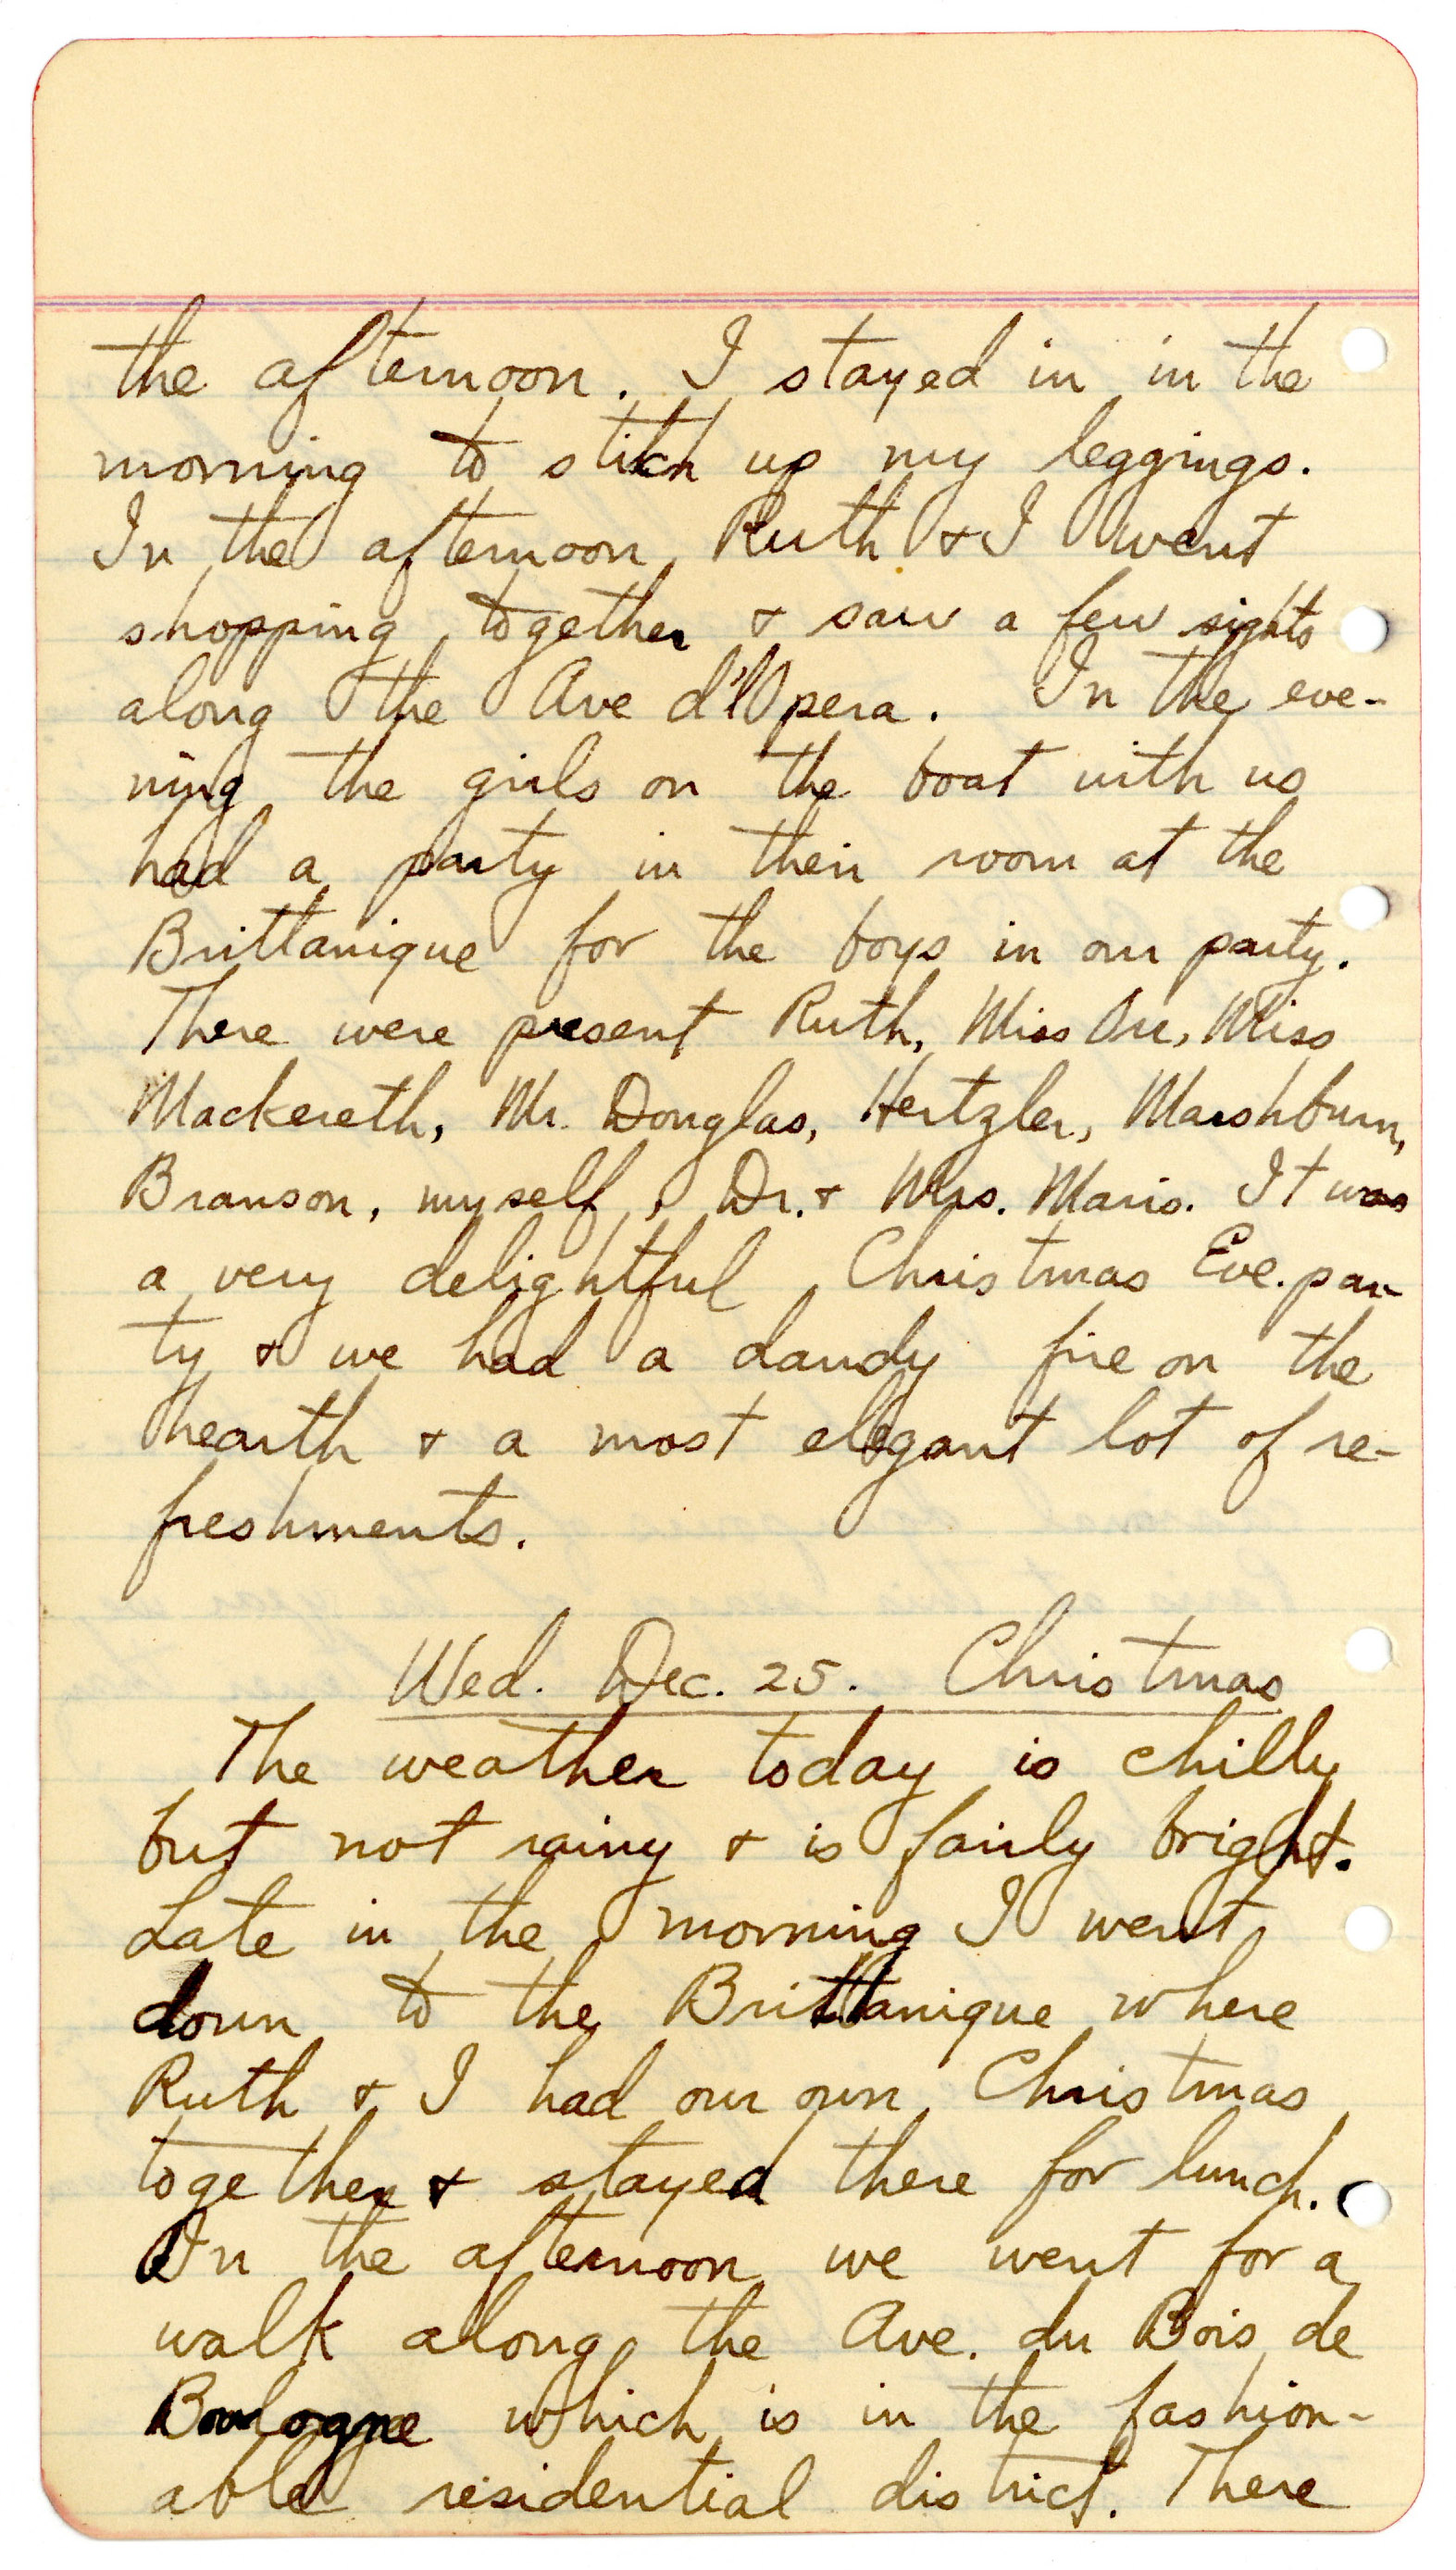 the afternoon. I stayed in in the
morning to stitch up my leggings.
In the afternoon Ruth & I went
shopping together & saw a few sights
along the Ave d'l Opera. In the eve-
ning the girls on the boat with us
had a party in their room at the
Brittanique for the boys in our party.
There were present Ruth, Miss Orr, Miss
Mackereth, Mr. Douglas, Hertzler, Marshburn,
Branson, myself, Dr. & Mrs. Maris. It was
a very delightful Christmas Eve. par-
ty & we had a dandy fire on the
hearth & a most elegant lot of re-
freshments.
Wed. Dec. 25. Christmas
The weather today is chilly
but not rainy & is fairly bright.
Late in the morning I went
down to the Brittanique where
Ruth & I had our own Christmas
together & stayed there for lunch.
In the afternoon we went for a
walk along the Ave. du Bois de
Boulogne which is in the fashion-
able residential district. There